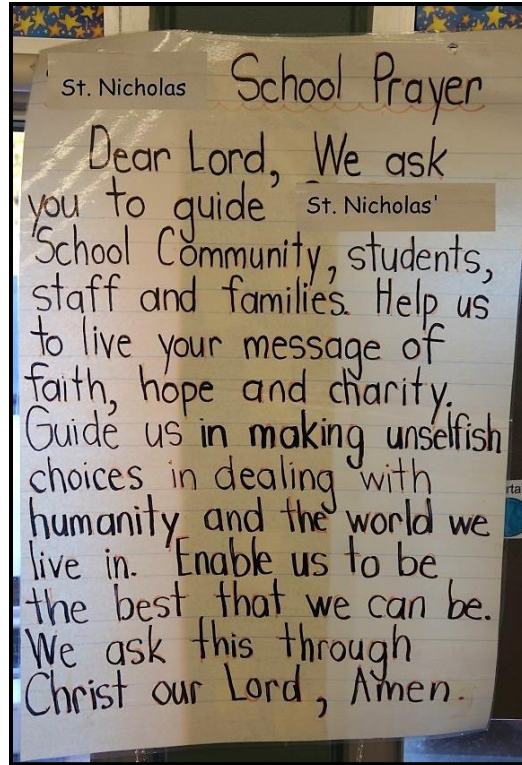 St. Nicholas School Prayer
Dear Lord, We ask
you to guide St. Nicholas'
School Community, students,
staff and families. Help us
to live your message of
faith, hope and charity.
Guide us in making unselfish
choices in dealing with
humanity and the world we
live in. Enable us to be
the best that we can be.
We ask this through
Christ our Lord, Amen.
rta